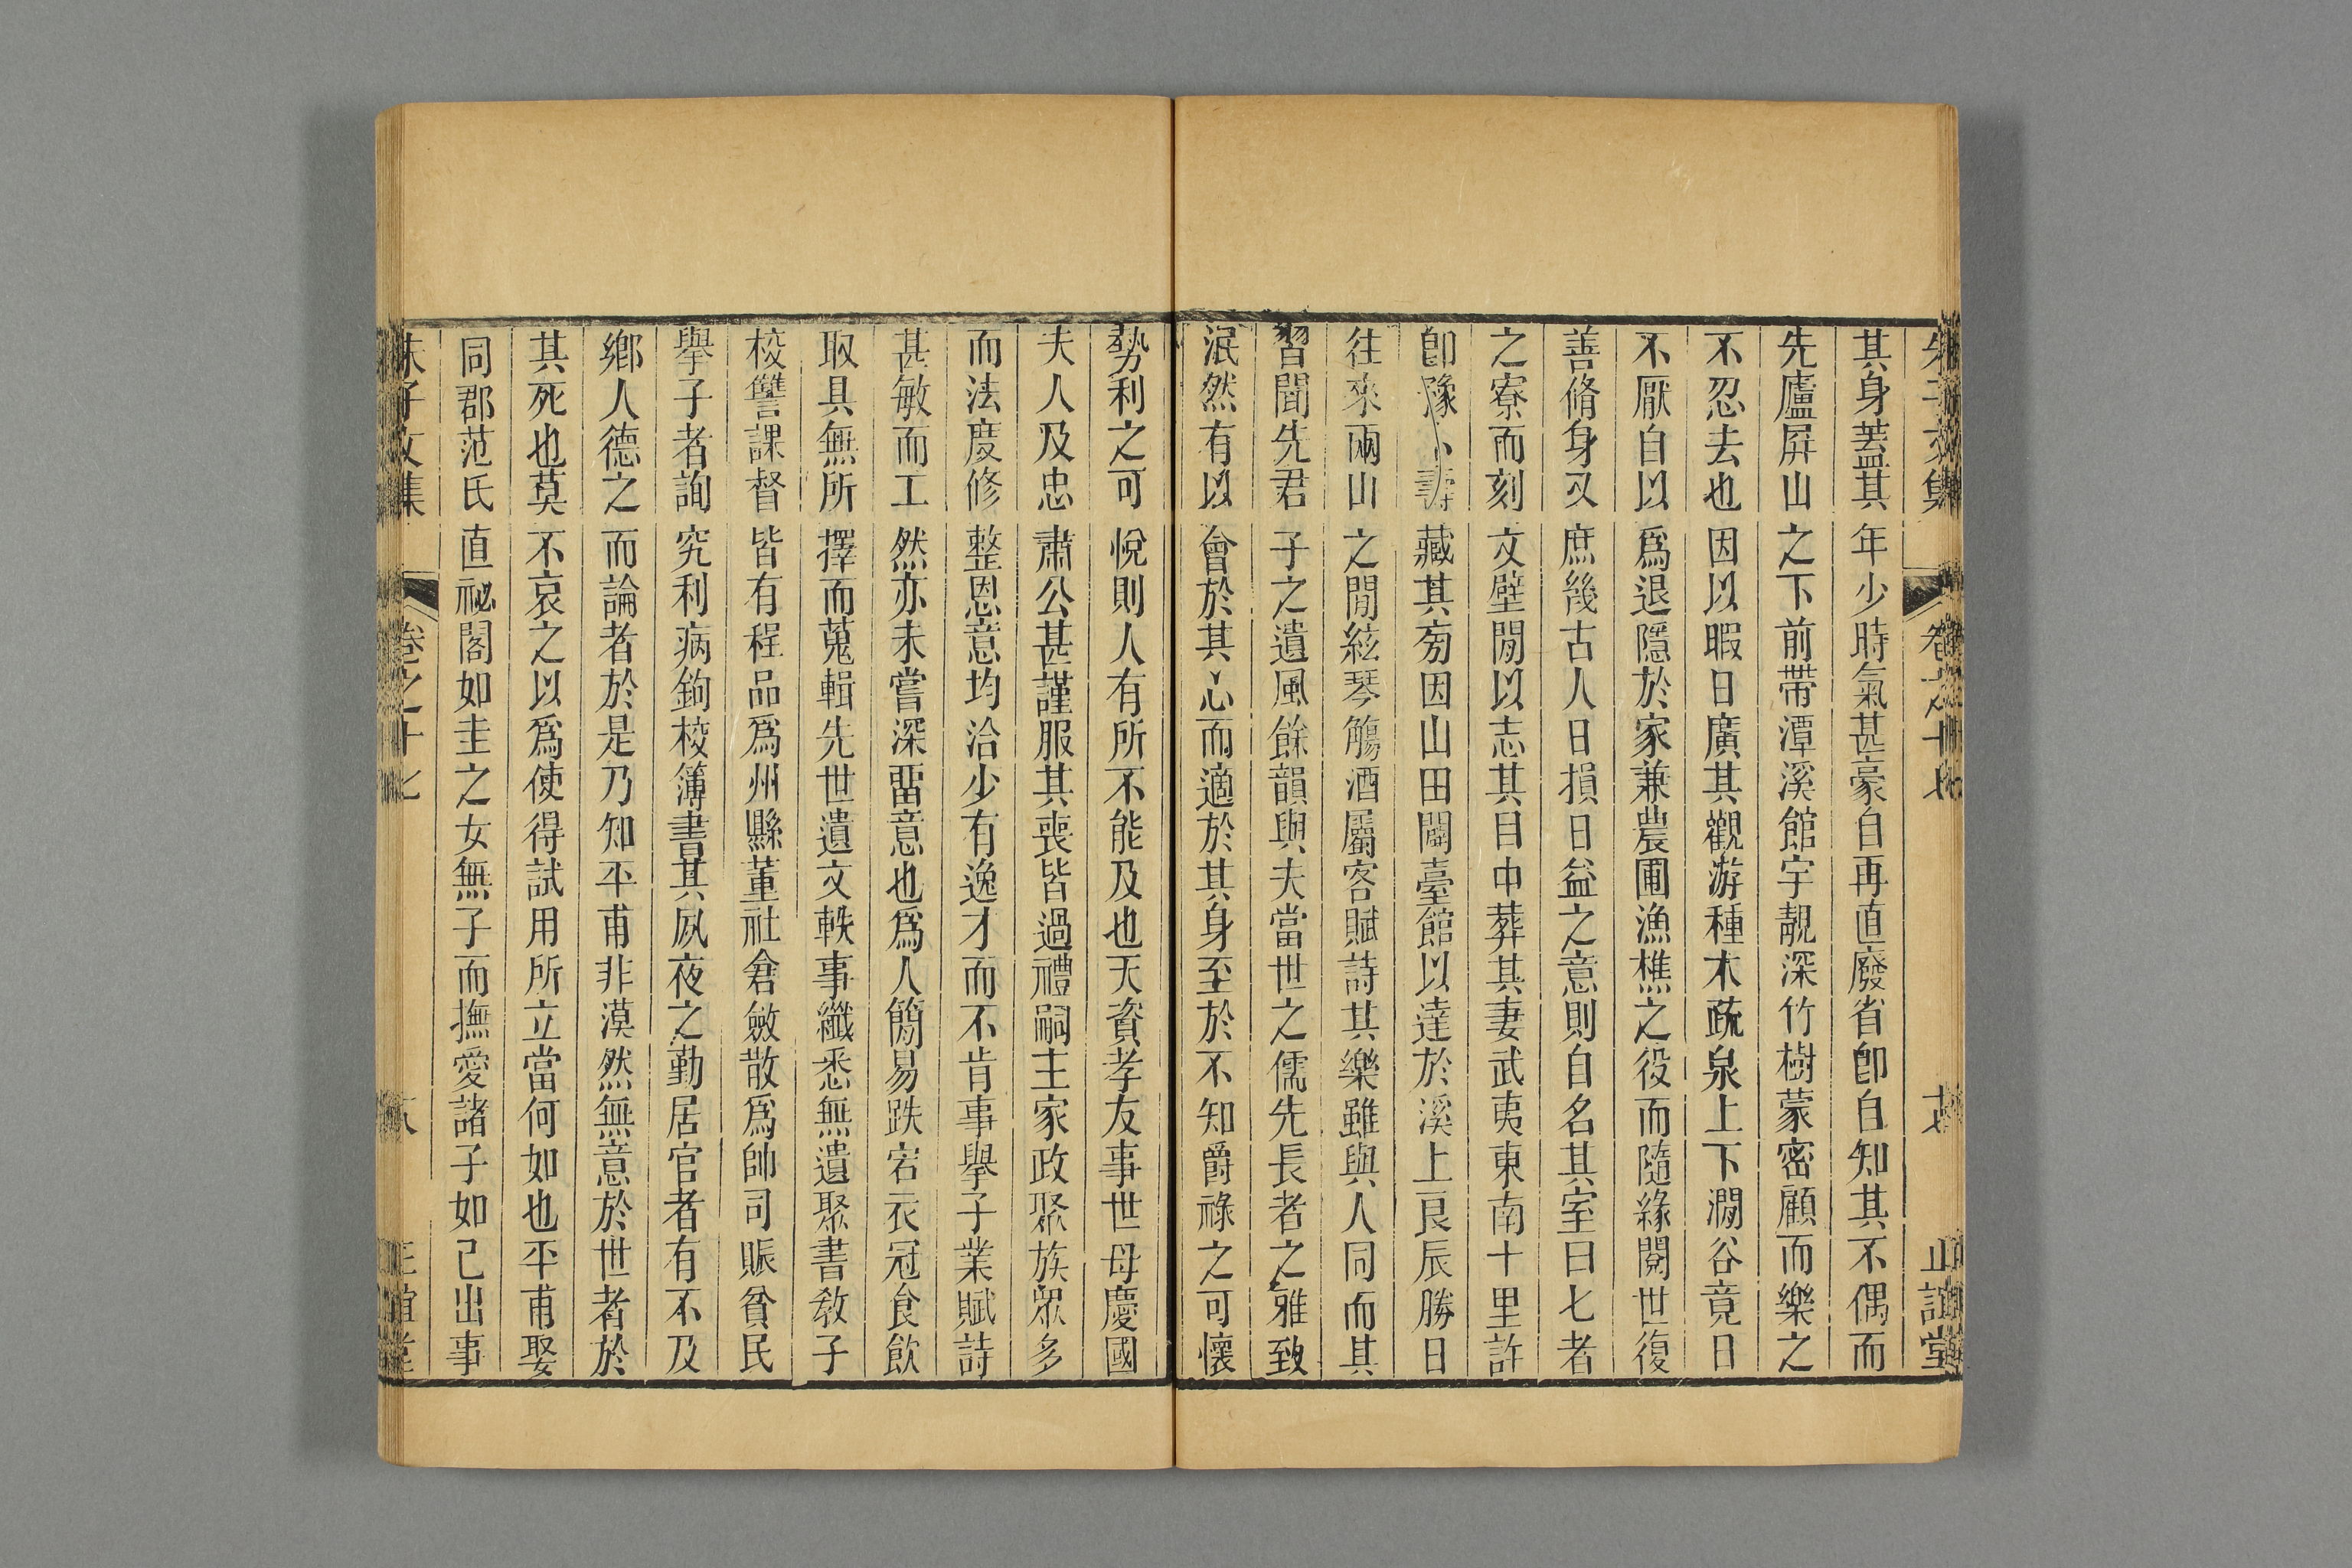 朱子文集 卷之十七 十七 正誼堂
其身蓋其年少時氣甚豪自再直廢省卽自知其不偶而
先廬屛山之下前帶潭溪館宇靚深竹樹蒙密顧而樂之
不忍去也因以暇日廣其觀游種木疏泉上下澗谷竟日
不厭自以爲退隱於家兼農圃漁樵之役而隨緣閱世復
善脩身又庶幾古人日損日益之意則自名其室曰七者
之寮而刻文壁閒以志其目中葬其妻武夷東南十里許
卽豫卜壽藏其旁因山田闢臺館以達於溪上良辰勝日
往來兩山之閒絃琴觴酒屬客賦詩其樂雖與人同而其
習聞先君子之遺風餘韻與夫當世之儒先長者之雅致
泯然有以會於其心而適於其身至於不知爵祿之可懷
勢利之可悅則人有所不能及也天資孝友事世母慶國
夫人及忠肅公甚謹服其喪皆過禮嗣主家政聚族衆多
而法度修整恩意均洽少有逸才而不肯事擧子業賦詩
甚敏而工然亦未嘗深畱意也爲人簡易跌宕衣冠食飮
取具無所擇而蒐輯先世遺文軼事纖悉無遺聚書敎子
校讐課督皆有程品爲州縣董社倉斂散爲帥司賑貧民
擧子者詢究利病鉤校簿書其夙夜之勤居官者有不及
鄕人德之而論者於是乃知平甫非漠然無意於世者於
其死也莫不哀之以爲使得試用所立當何如也平甫娶
同郡范氏直祕閣如圭之女無子而撫愛諸子如己出事
朱子文集 卷之十七 十八 正誼堂